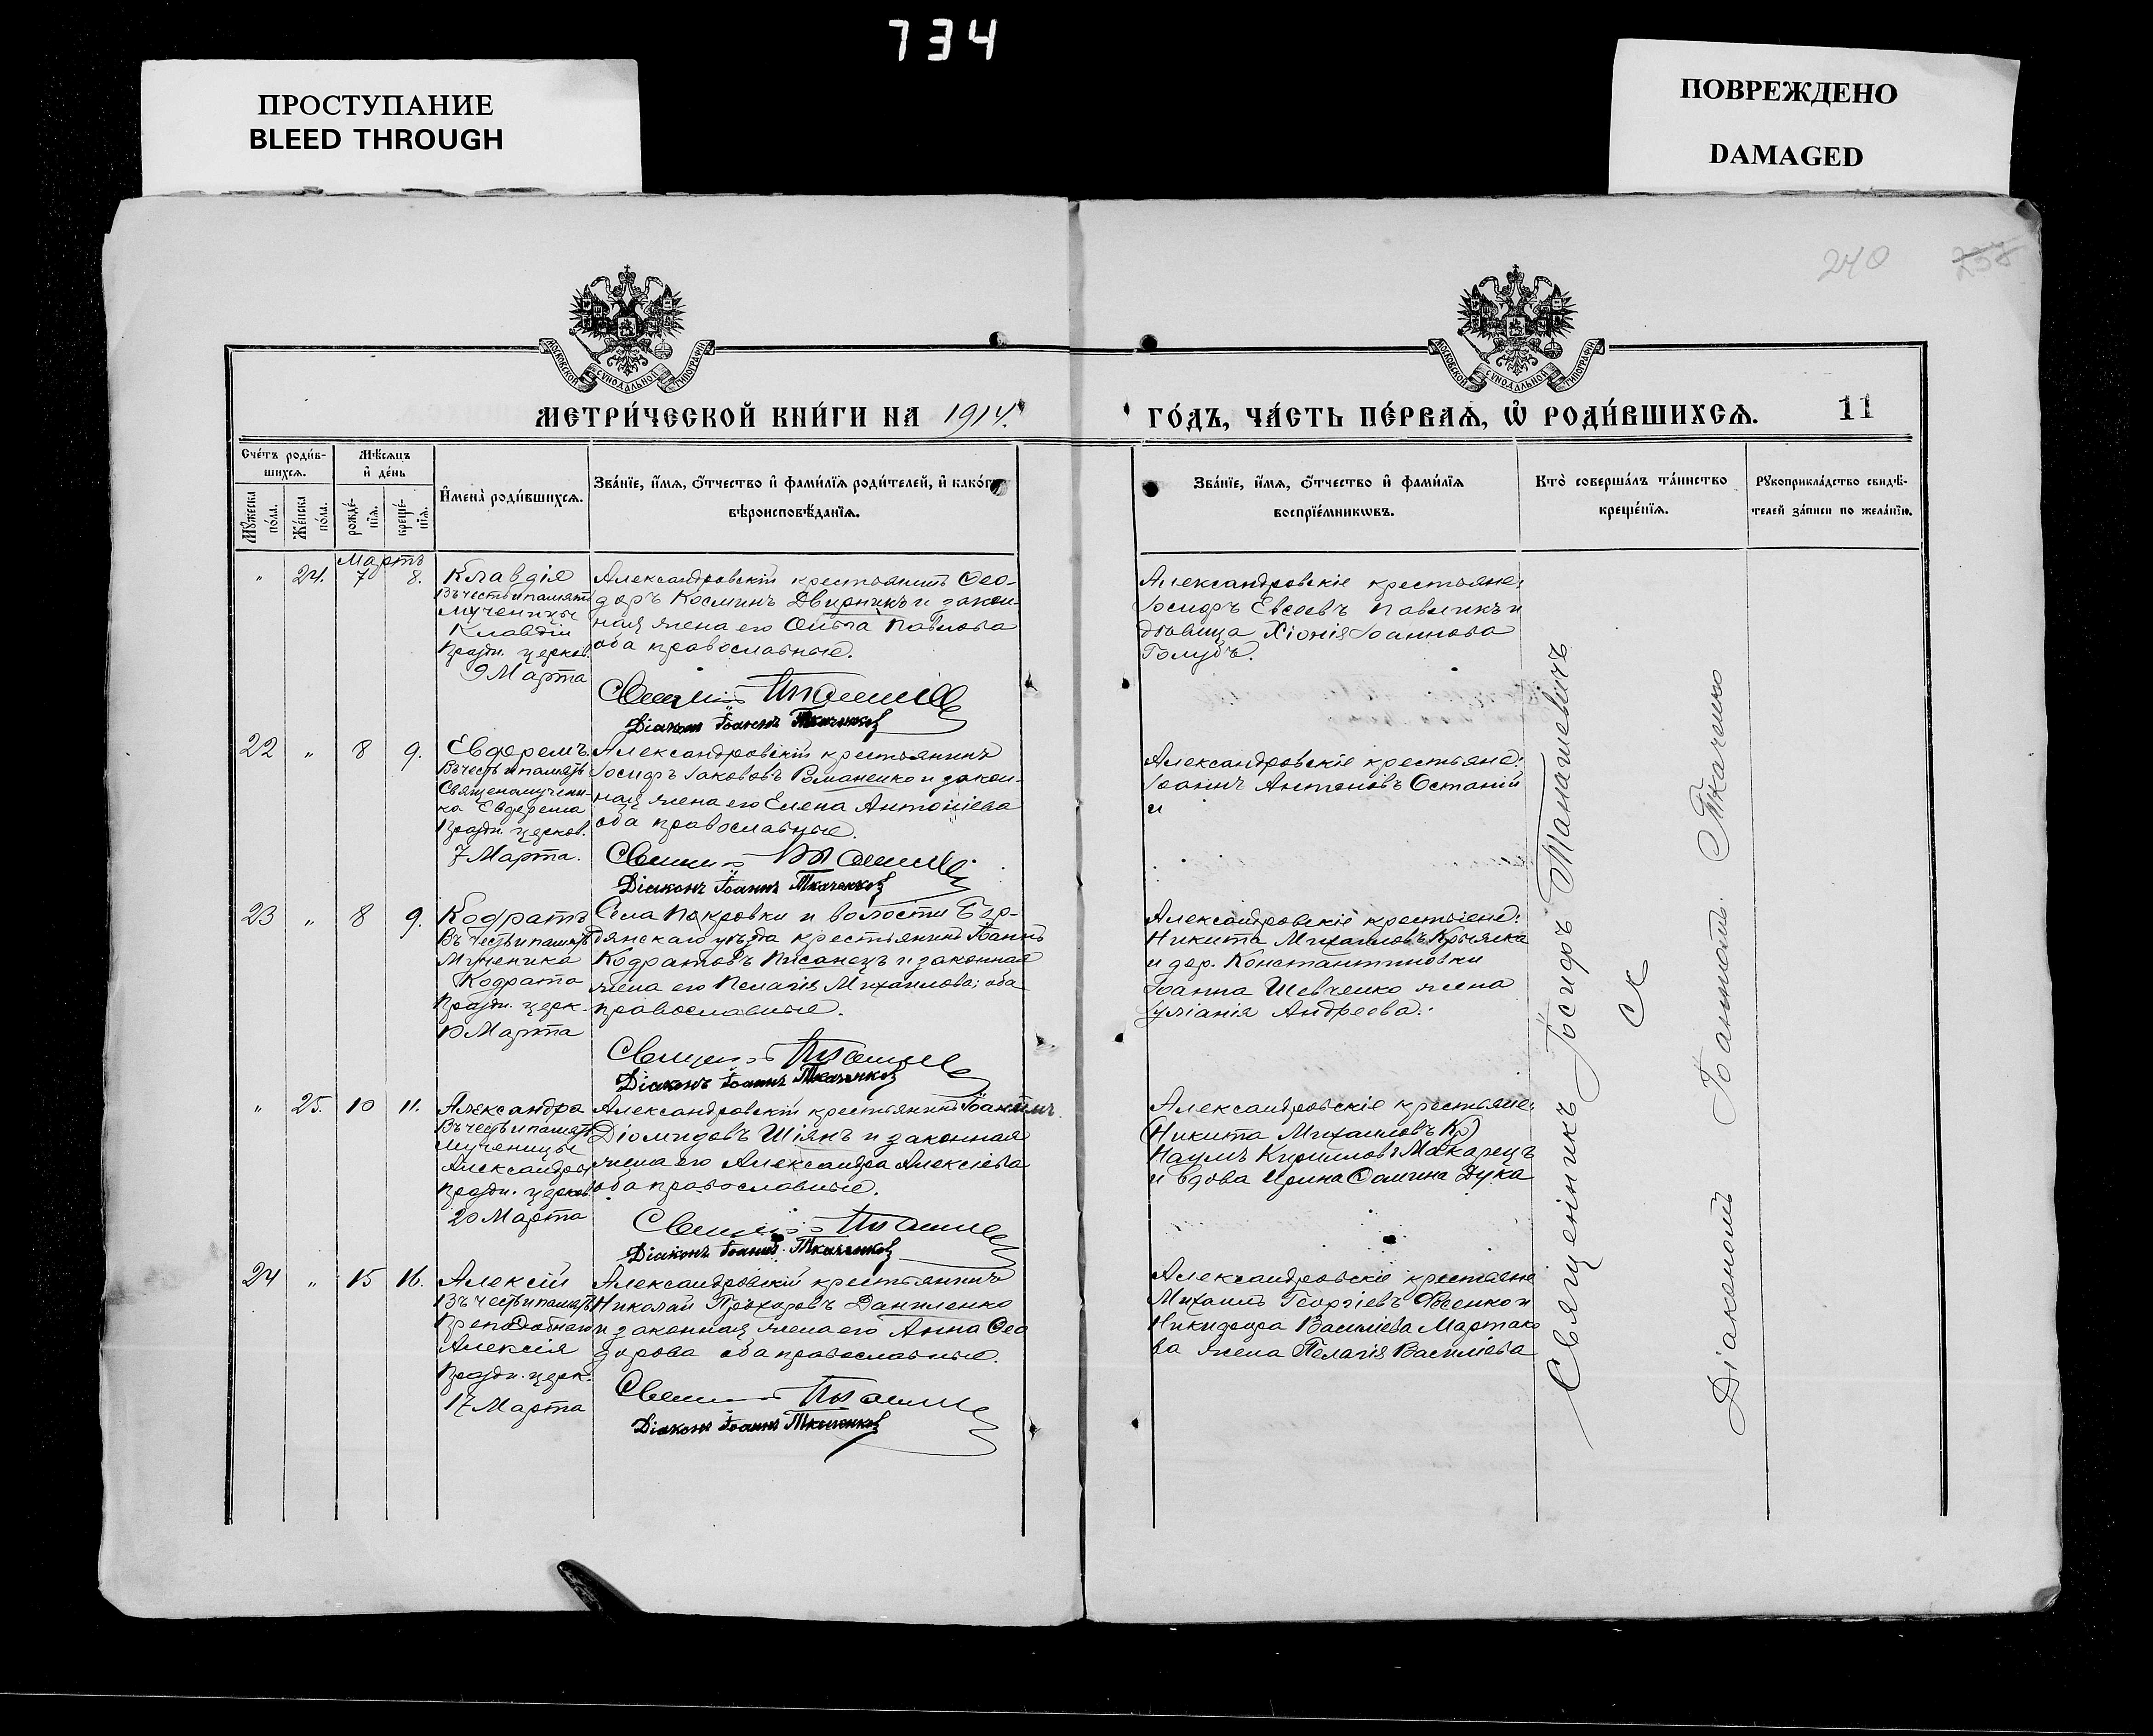 734
ПРОСТУПАНИЕ
BLEED THROUGH
ПОВРЕЖДЕНО
DAMAGED
240 238
МОСКОВСКОЙ СѴНОДАЛЬНОЙ ТИПОГРАФІИ
МОСКОВСКОЙ СѴНОДАЛЬНОЙ ТИПОГРАФІИ
МЕТРИ́ЧЕСКОЙ КНИ́ГИ НА 1914.
ГО́ДЪ, ЧА́СТЬ ПЕ́РВАѦ, Ѡ҆ РОДИ́ВШИХСѦ. 11
Сче́тъ роди́в-
шихсѧ.
Мѣ́сѧцъ
и҆ де́нь
Мꙋ́жеска по́ла.
Же́нска по́ла.
рожде́-нїѧ.
креще́-нїѧ.
И҆мена̀ роди́вшихсѧ.
Зва́нїе, и҆́мѧ, ѻ҆́тчество и҆ фами́лїѧ роди́телей, и҆ како́гѡ
вѣроисповѣ́данїѧ.
Зва́нїе, и҆́мѧ, ѻ҆́тчество и҆ фами́лїѧ
воспрїе́мникѡвъ.
Кто̀ соверша́лъ та́инство
креще́нїѧ.
Рꙋкоприкла́дство свидѣ́-
телей за́писи по жела́нїю.
Мартъ
" 21. 7 8.
Клавдія
Въ честь и память
мученицы
Клавдіи
Праздн. церков.
9 Марта
Александровскій крестьянинъ Ѳео-
доръ Косминъ Двирникъ и закон-
ная жена его Ольга Павлова
оба православные.
Діаконъ Іоаннъ Ткаченко
Александровскіе крестьяне:
Іосифъ Евсеевъ Павликъ и
дѣвица Хіонія Іоаннова
Голубъ.
22 " 8 9.
Евфремъ
Въ честь и память
Священномучени-
ка Евфрема
Праздн. церков.
7 Марта.
Александровскій крестьянинъ
Іосифъ Іакововъ Романенко и закон-
ная жена его Елена Антоніева
оба православные.
Діаконъ Іоаннъ Ткаченко
Александровскіе крестьяне:
Іоаннъ Антоновъ Останій
и
23 " 8 9.
Кодратъ
Въ честь и память
Мученика
Кодрата
Праздн. церк.
10 Марта
Села Покровки и волости Бер-
дянскаго уѣзда крестьянинъ Іоаннъ
Кодратовъ Писанецъ и законная
жена его Пелагія Михаилова; оба
православные.
Діаконъ Іоаннъ Ткаченко
Александровскіе крестьяне:
Никита Михаиловъ
и дер. Константиновки
Іоанна Шевченко жена
Іуліанія Андреева.
" 25. 10 11.
Александра
Въ честь и память
мученицы
Александры
Праздн. церков.
20 Марта
Александровскій крестьянинъ
Діомидовъ Шіянъ и законная
жена его Александра Алексіева
оба православные.
Діаконъ Іоаннъ Ткаченко
Александровскіе крестьяне:
(Никита Михаиловъ Кр)
Наумъ Кирилловъ Макарецъ
и вдова Ирина Ѳомина Дука
24 " 15 16.
Алексій
Въ честь и память
Преподобнаго
Алексія
Праздн. церк.
17 Марта
Александровскій крестьянинъ
Николай Прохоровъ Даниленко
и законная жена его Анна Ѳео
дорова оба православные.
Діаконъ Іоаннъ Ткаченко
Александровскіе крестьяне
Михаилъ Георгіевъ
Никифора Василіева Мартако
ва жена Пелагія Василіева
Священникъ Іосифъ Танашевичъ
съ
Діакономъ Іоанномъ Ткаченко